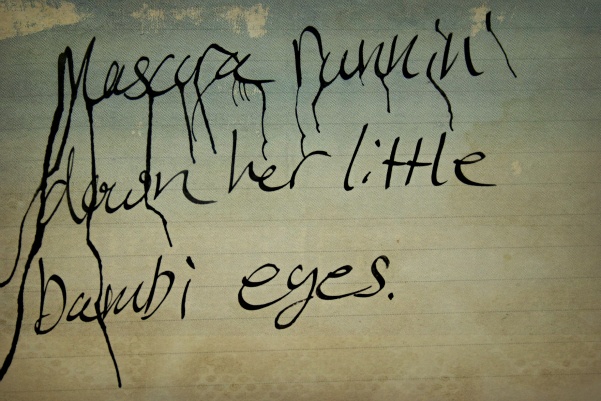 Mascara runnin'
down her little
bambi eyes.